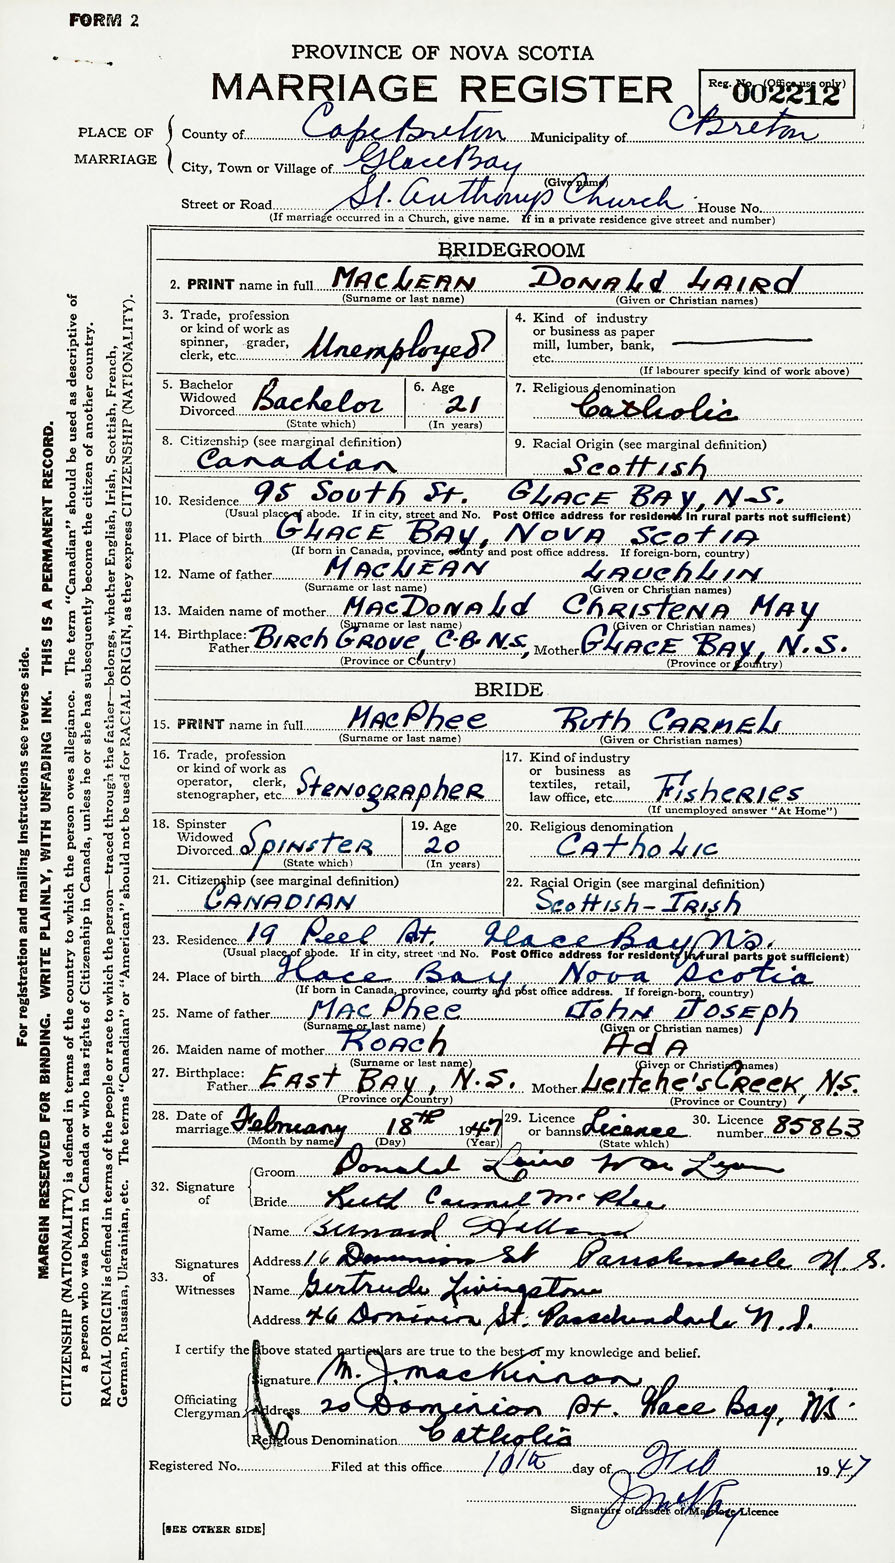 FORM 2
PROVINCE OF NOVA SCOTIA
MARRIAGE REGISTER
Reg. No. (Office use only)
002212
PLACE OF MARRIAGE
County of Cape Breton Municipality of C Breton
City, Town or Village of Glace Bay
(Give name)
Street or Road St. Anthonys Church House No.
(If marriage occurred in a Church, give name. If in a private residence give street and number)
BRIDEGROOM
2. PRINT name in full MACLEAN DONALD LAIRD
(Surname or last name) (Given or Christian names)
3. Trade, profession or kind of work as spinner, grader, clerk, etc. Unemployed
4. Kind of industry or business as paper mill, lumber, bank, etc.
(If labourer specify kind of work above)
5. Bachelor Widowed Divorced Bachelor
(State which)
6. Age 21
(In years)
7. Religious denomination Catholic
8. Citizenship (see marginal definition)
Canadian
9. Racial Origin (see marginal definition)
Scottish
10. Residence 95 South St. GLACE BAY, N.S.
(Usual place of abode. If in city, street and No. Post Office address for residents in rural parts not sufficient)
11. Place of birth GLACE BAY, NOVA SCOTIA
(If born in Canada, province, county and post office address. If foreign-born, country)
12. Name of father MACLEAN LAUCHLIN
(Surname or last name) (Given or Christian names)
13. Maiden name of mother MACDONALD CHRISTENA MAY
(Surname or last name) (Given or Christian names)
14. Birthplace: Father BIRCH GROVE, C.B. N.S., Mother GLACE BAY, N.S.
(Province or Country) (Province or Country)
BRIDE
15. PRINT name in full MACPHEE RUTH CARMEL
(Surname or last name) (Given or Christian names)
16. Trade, profession or kind of work as operator, clerk, stenographer, etc. STENOGRAPHER
17. Kind of industry or business as textiles, retail, law office, etc. FISHERIES
(If unemployed answer "At Home")
18. Spinster Widowed Divorced SPINSTER
(State which)
19. Age 20
(In years)
20. Religious denomination
CATHOLIC
21. Citizenship (see marginal definition)
CANADIAN
22. Racial Origin (see marginal definition)
SCOTTISH-IRISH
23. Residence 19 Peel St. Glace Bay, N.S.
(Usual place of abode. If in city, street and No. Post Office address for residents in rural parts not sufficient)
24. Place of birth Glace Bay Nova Scotia
(If born in Canada, province, county and post office address. If foreign-born, country)
25. Name of father MACPHEE JOHN JOSEPH
(Surname or last name) (Given or Christian names)
26. Maiden name of mother ROACH ADA
(Surname or last name) (Given or Christian names)
27. Birthplace: Father EAST BAY, N.S. Mother Leitche's Creek, N.S.
(Province or Country) (Province or Country)
28. Date of marriage February 18th 1947
(Month by name) (Day) (Year)
29. Licence or banns Licence
(State which)
30. Licence number 85863
32. Signature of
Groom Donald Laird MacLean
Bride Ruth Carmel McPhee
33. Signatures of Witnesses
Name Bernard Holland
Address 16 Dominion St Passchendaele N.S.
Name Gertrude Livingstone
Address 46 Dominion St. Passchendaele N.S.
I certify the above stated particulars are true to the best of my knowledge and belief.
Officiating Clergyman
Signature M. J. MacKinnon
Address 20 Dominion St. Glace Bay, NS.
Religious Denomination Catholic
Registered No. Filed at this office 10th day of Feb 1947
Signature of Issuer of Marriage Licence
[SEE OTHER SIDE]
For registration and mailing instructions see reverse side.
MARGIN RESERVED FOR BINDING. WRITE PLAINLY, WITH UNFADING INK. THIS IS A PERMANENT RECORD.
CITIZENSHIP (NATIONALITY) is defined in terms of the country to which the person owes allegiance. The term "Canadian" should be used as descriptive of
a person who was born in Canada or who has rights of Citizenship in Canada, unless he or she has subsequently become the citizen of another country.
RACIAL ORIGIN is defined in terms of the people or race to which the person—traced through the father—belongs, whether English, Irish, Scottish, French,
German, Russian, Ukrainian, etc. The terms "Canadian" or "American" should not be used for RACIAL ORIGIN, as they express CITIZENSHIP (NATIONALITY).